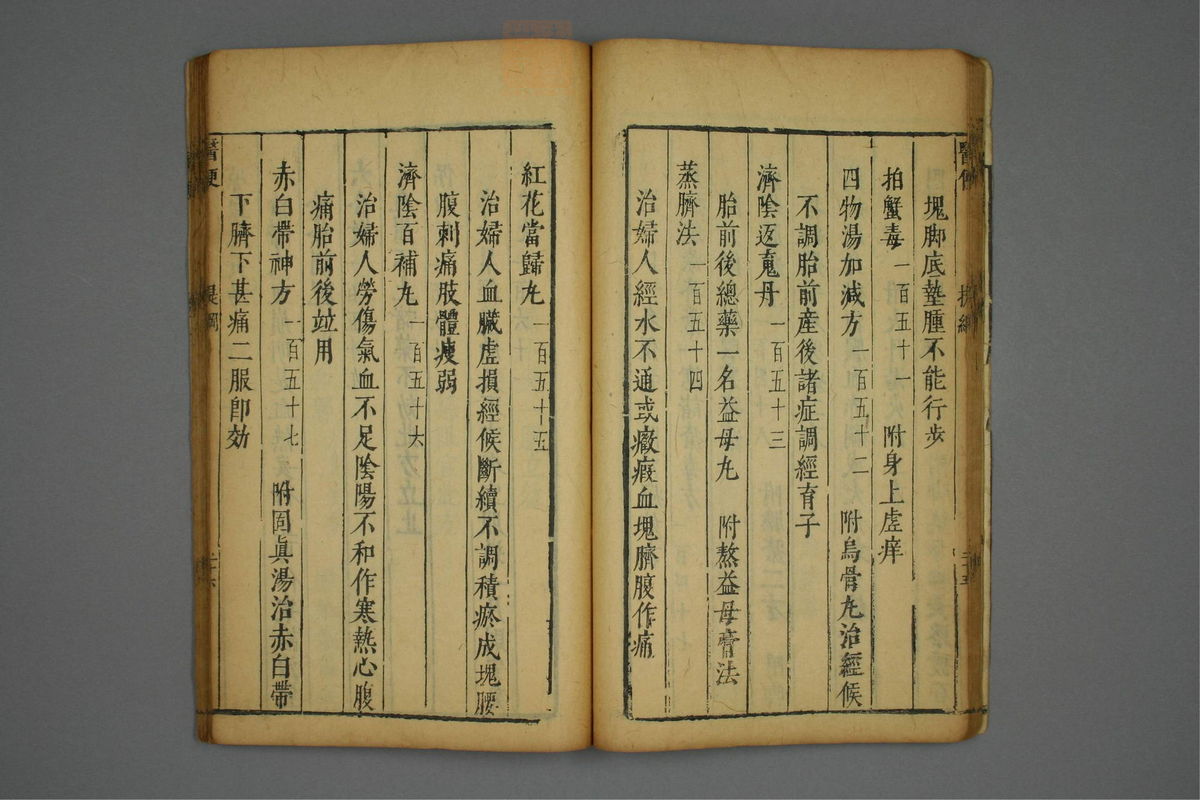 塊脚底墊腫不能行步
拍蟹毒 一百五十一 附身上虛痒
四物湯加減方 一百五十二 附烏骨丸治經候
不調胎前產後諸症調經育子
濟陰返䰟丹 一百五十三
胎前後總藥一名益母丸 附熬益母膏法
蒸臍法 一百五十四
治婦人經水不通或癥瘕血塊臍腹作痛
紅花當歸丸 一百五十五
治婦人血臟虛損經候斷續不調積瘀成塊腰
腹刺痛肢體瘦弱
濟陰百補丸 一百五十六
治婦人勞傷氣血不足陰陽不和作寒熱心腹
痛胎前後竝用
赤白帶神方 一百五十七 附固眞湯治赤白帶
下臍下甚痛二服卽効
醫便
提綱
二十六